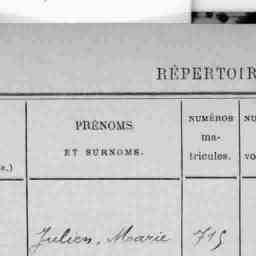 RÉPERTOIR
PRÉNOMS
ET SURNOMS.
NUMÉROS
ma-
tricules.
NU
vo
e.)
Julien, Marie 715